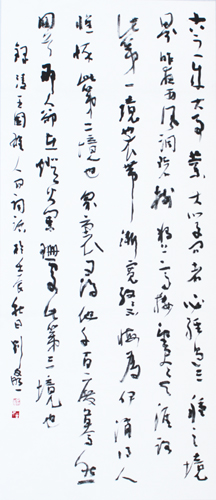 古今之成大事業大學問者必經過三種之境
界昨夜西風凋碧樹獨上高樓望盡天涯路
此第一境也衣帶漸寬終不悔為伊消得人
憔悴此第二境也眾裏尋他千百度驀然
回首那人卻在燈火闌珊處此第三境也
錄王國維人間詞話於秋日劉